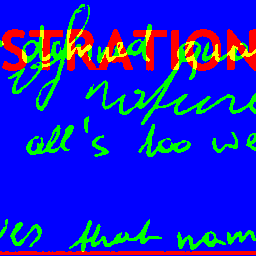 STRATION
defined qua
nature
all's too we
ves that nam